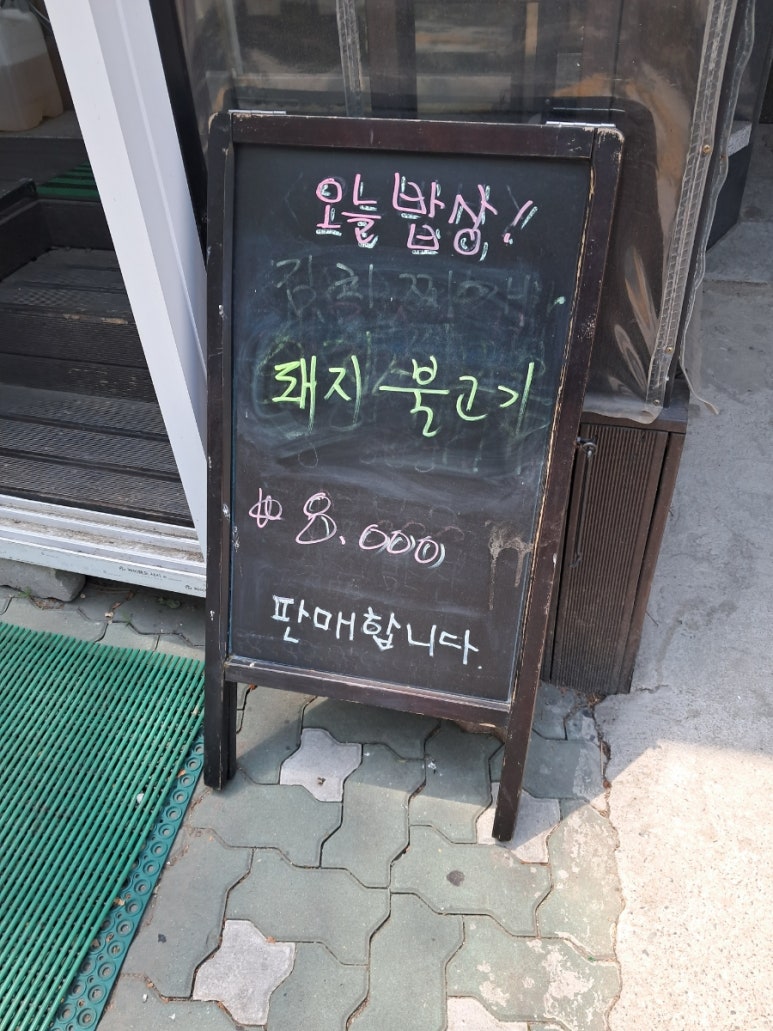 오늘 밥상!
돼지 불고기
₩ 8.000
판매합니다.